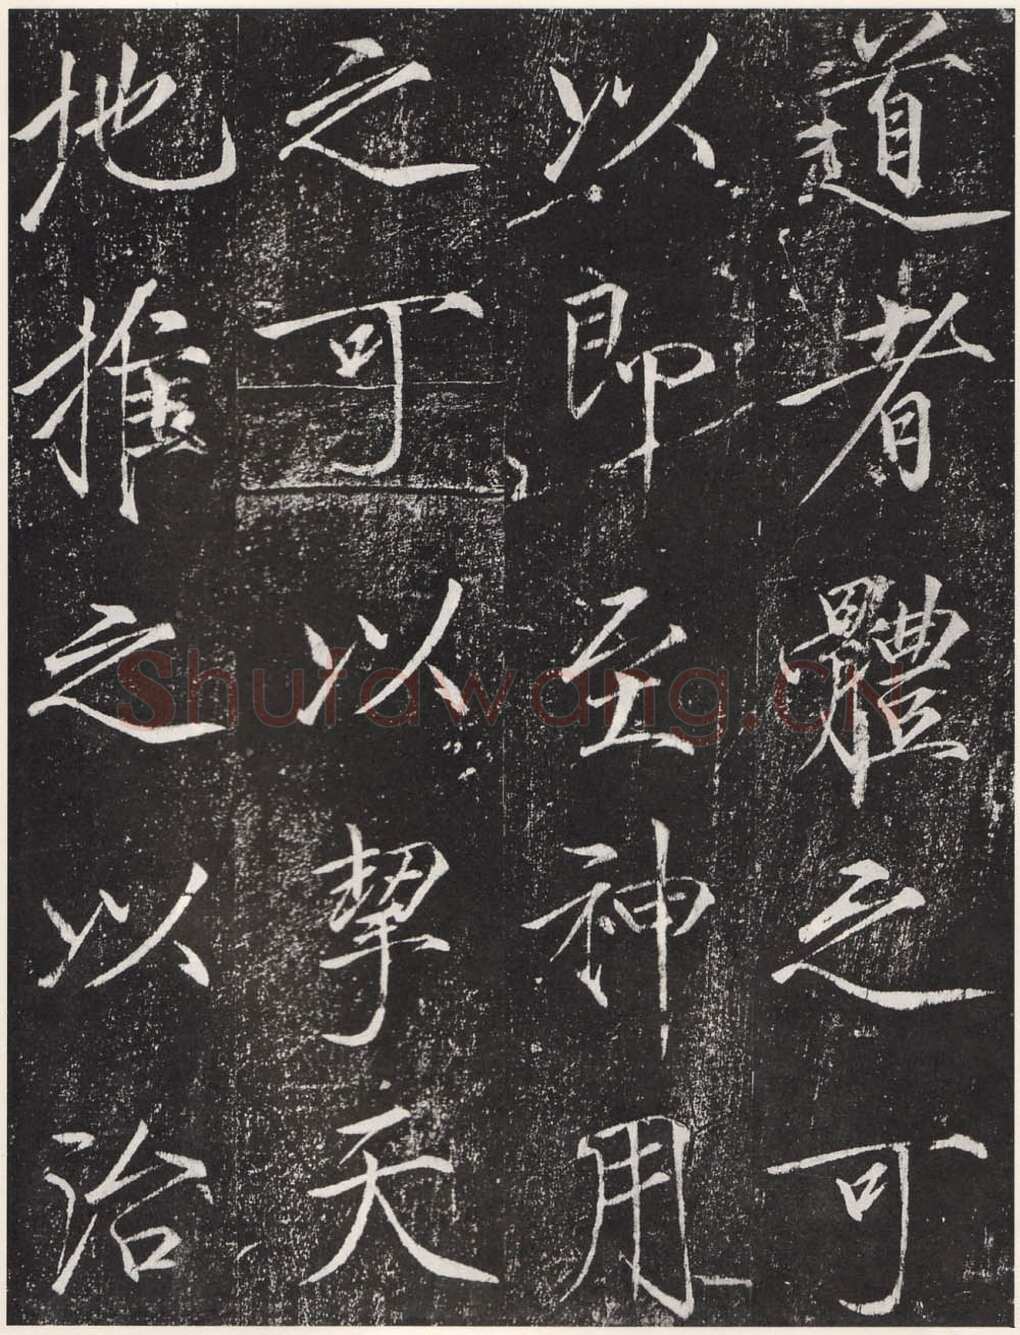 道者體之可
以即至神用
之可以挈天
地推之以治
Shufawang.CN